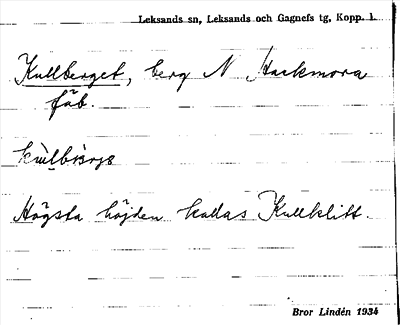 Leksands sn, Leksands och Gagnefs tg, Kopp. l.
Kullberget, berg N Hackmora
fäb.
Högsta höjden kallas Kullklitt.
Bror Lindén 1934